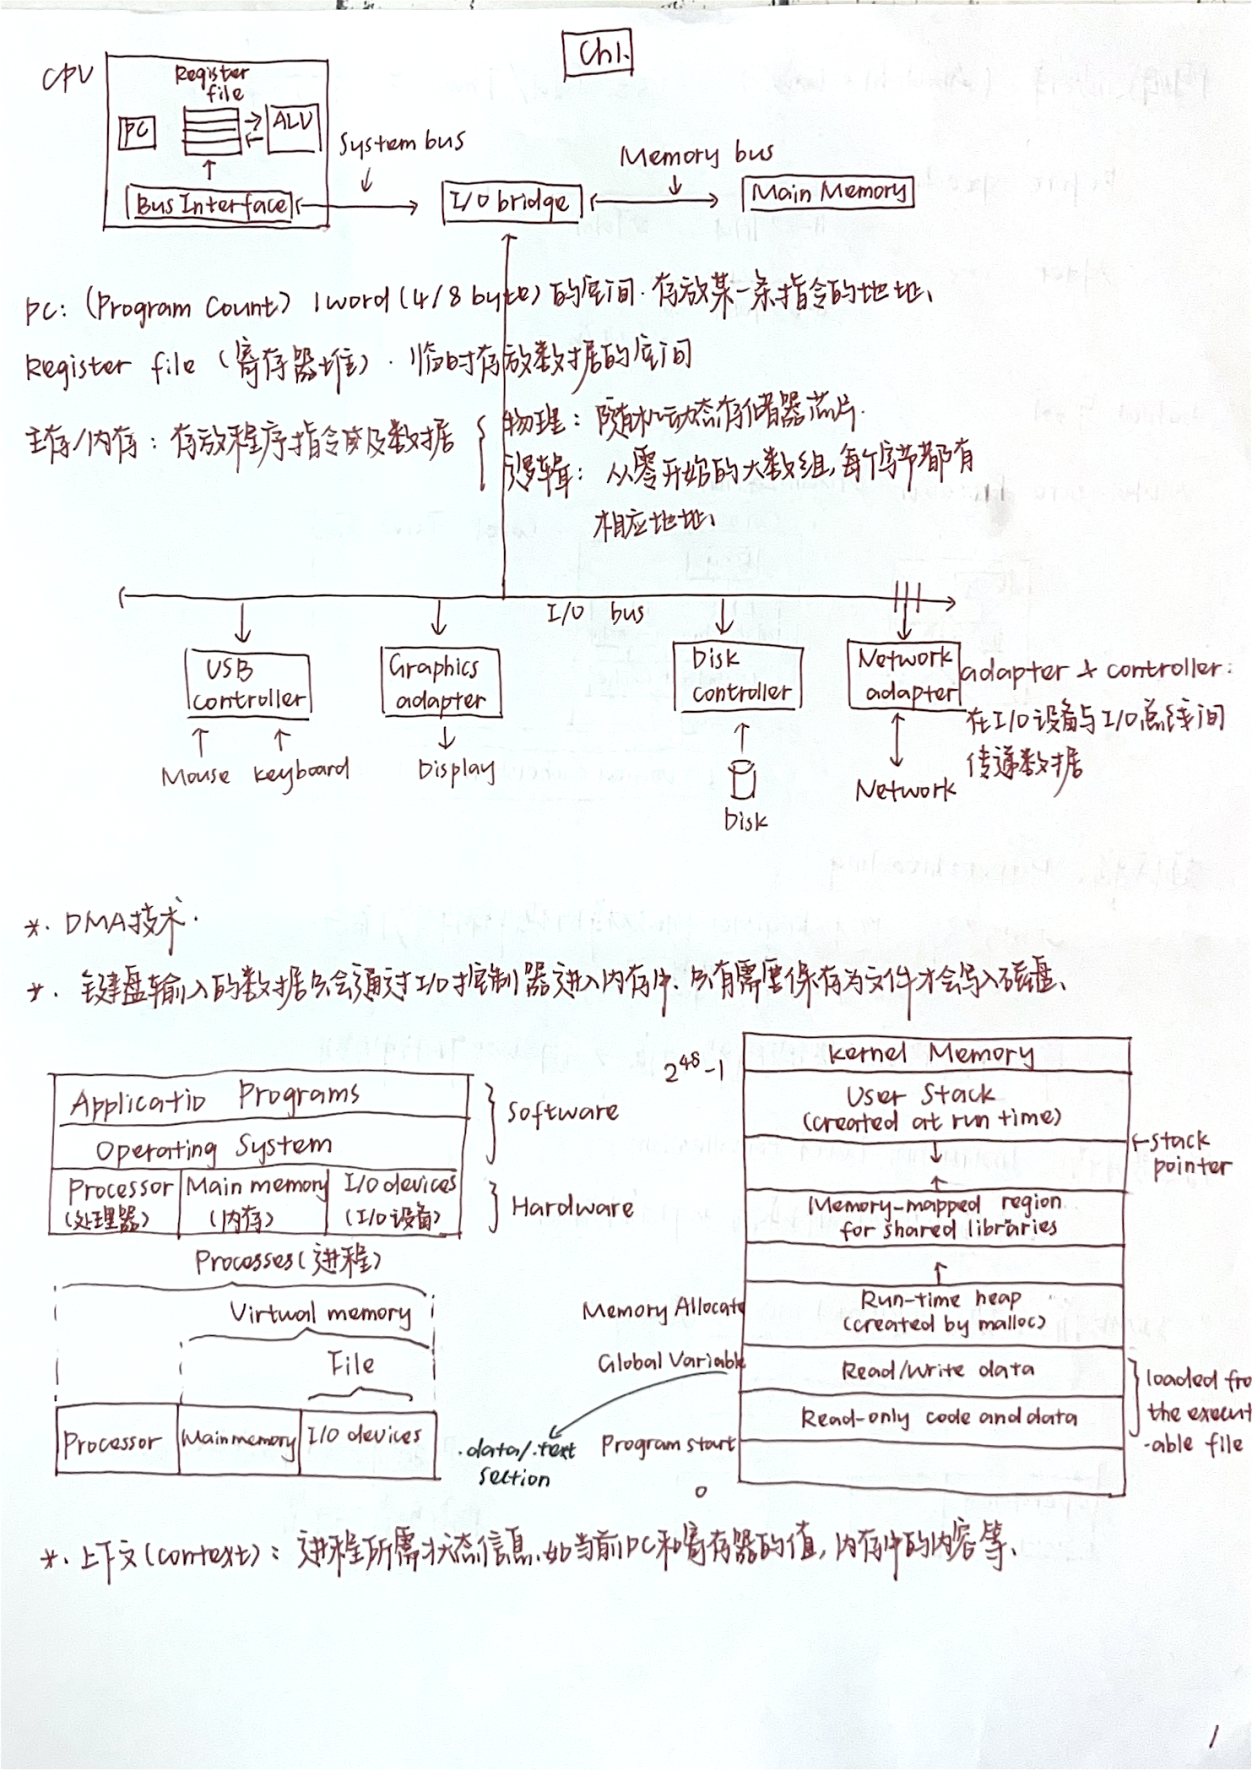 Ch1.
CPU
Register
file
PC
ALU
System bus
Memory bus
Bus Interface
I/O bridge
Main Memory
PC: (Program Count) 1 word (4/8 byte) 的空间. 存放某一条指令的地址.
Register file (寄存器堆). 临时存放数据的空间
主存/内存: 存放程序指令及数据
物理: 随机动态存储器芯片.
逻辑: 从零开始的大数组, 每个字节都有
相应地址.
I/O bus
USB
controller
Graphics
adapter
Disk
controller
Network
adapter
adapter & controller:
在I/O设备与I/O总线间
传递数据
Mouse keyboard
Display
Disk
Network
*. DMA技术.
*. 键盘输入的数据只会通过I/O控制器进入内存中. 只有需要保存为文件才会写入磁盘.
Applicatio Programs
Operating System
Processor
(处理器)
Main memory
(内存)
I/O devices
(I/O设备)
Software
Hardware
Processes (进程)
Virtual memory
File
Processor
Main memory
I/O devices
2^48-1
Kernel Memory
User Stack
(created at run time)
stack
pointer
Memory-mapped region
for shared libraries
Memory Allocate
Run-time heap
(created by malloc)
Global Variable
Read/Write data
Read-only code and data
loaded from
the execut
-able file
.data/.text
section
Program start
0
*. 上下文(context): 进程所需状态信息.如当前PC和寄存器的值, 内存中的内容等.
1